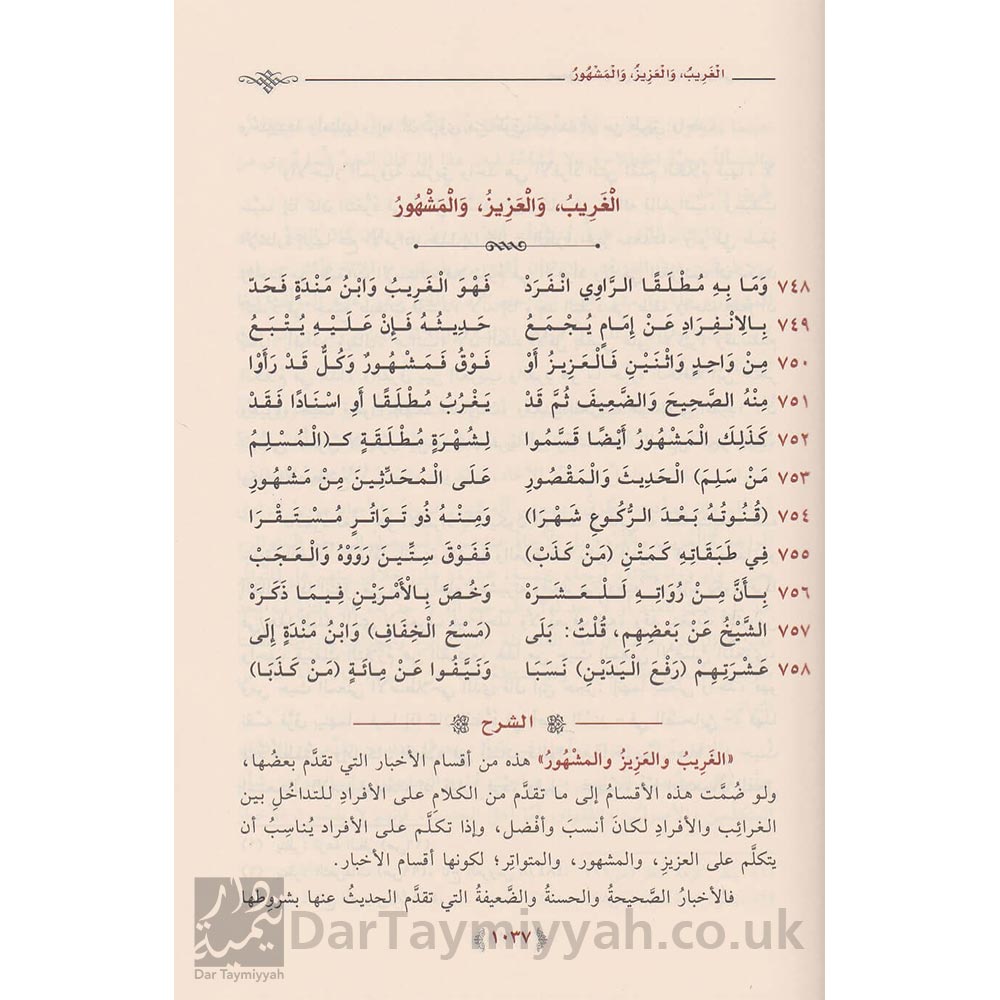 الْغَرِيبُ، وَالْعَزِيزُ، وَالْمَشْهُورُ
الْغَرِيبُ، وَالْعَزِيزُ، وَالْمَشْهُورُ
٧٤٨ وَمَا بِهِ مُطْلَقًا الرَّاوِي انْفَرَدْ فَهْوَ الْغَرِيبُ وَابْنُ مَنْدَةٍ فَحَدْ
٧٤٩ بِالِانْفِرَادِ عَنْ إِمَامٍ يُجْمَعُ حَدِيثُهُ فَإِنْ عَلَيْهِ يُتْبَعُ
٧٥٠ مِنْ وَاحِدٍ وَاثْنَيْنِ فَالْعَزِيزُ أَوْ فَوْقُ فَمَشْهُورٌ وَكُلٌّ قَدْ رَأَوْا
٧٥١ مِنْهُ الصَّحِيحَ وَالضَّعِيفَ ثُمَّ قَدْ يَغْرُبُ مُطْلَقًا أَوِ اسْنَادًا فَقَدْ
٧٥٢ كَذَلِكَ الْمَشْهُورُ أَيْضًا قَسَّمُوا لِشُهْرَةٍ مُطْلَقَةٍ كـ(الْمُسْلِمُ
٧٥٣ مَنْ سَلِمَ) الْحَدِيثَ وَالْمَقْصُورِ عَلَى الْمُحَدِّثِينَ مِنْ مَشْهُورِ
٧٥٤ (قُنُوتُهُ بَعْدَ الرُّكُوعِ شَهْرَا) وَمِنْهُ ذُو تَوَاتُرٍ مُسْتَقْرَا
٧٥٥ فِي طَبَقَاتِهِ كَمَتْنِ (مَنْ كَذَبْ) فَفَوْقَ سِتِّينَ رَوَوْهُ وَالْعَجَبْ
٧٥٦ بِأَنَّ مِنْ رُوَاتِهِ لَلْعَشَرَهْ وَخُصَّ بِالْأَمْرَيْنِ فِيمَا ذَكَرَهْ
٧٥٧ الشَّيْخُ عَنْ بَعْضِهِم، قُلْتُ: بَلَى (مَسْحُ الْخِفَافِ) وَابْنُ مَنْدَةٍ إِلَى
٧٥٨ عَشْرَتِهِمْ (رَفْعَ الْيَدَيْنِ) نَسَبَا وَنَيَّفُوا عَنْ مِائَةٍ (مَنْ كَذَبَا)
الشرح
«الغَرِيبُ والعَزِيزُ والمشهُورُ» هذه من أقسام الأخبار التي تقدَّم بعضُها،
ولو ضُمَّت هذه الأقسامُ إلى ما تقدَّم من الكلامِ على الأفرادِ للتداخُلِ بين
الغرائِب والأفرادِ لكانَ أنسبَ وأفْضل، وإذا تكلَّم على الأفراد يُناسِبُ أن
يتكلَّم على العزيزِ، والمشهور، والمتواتِر؛ لكونها أقسام الأخبار.
فالأخبارُ الصَّحيحةُ والحسنةُ والضَّعيفةُ التي تقدَّم الحديثُ عنها بشروطِها
١٠٣٧
DarTaymiyyah.co.uk
Dar Taymiyyah